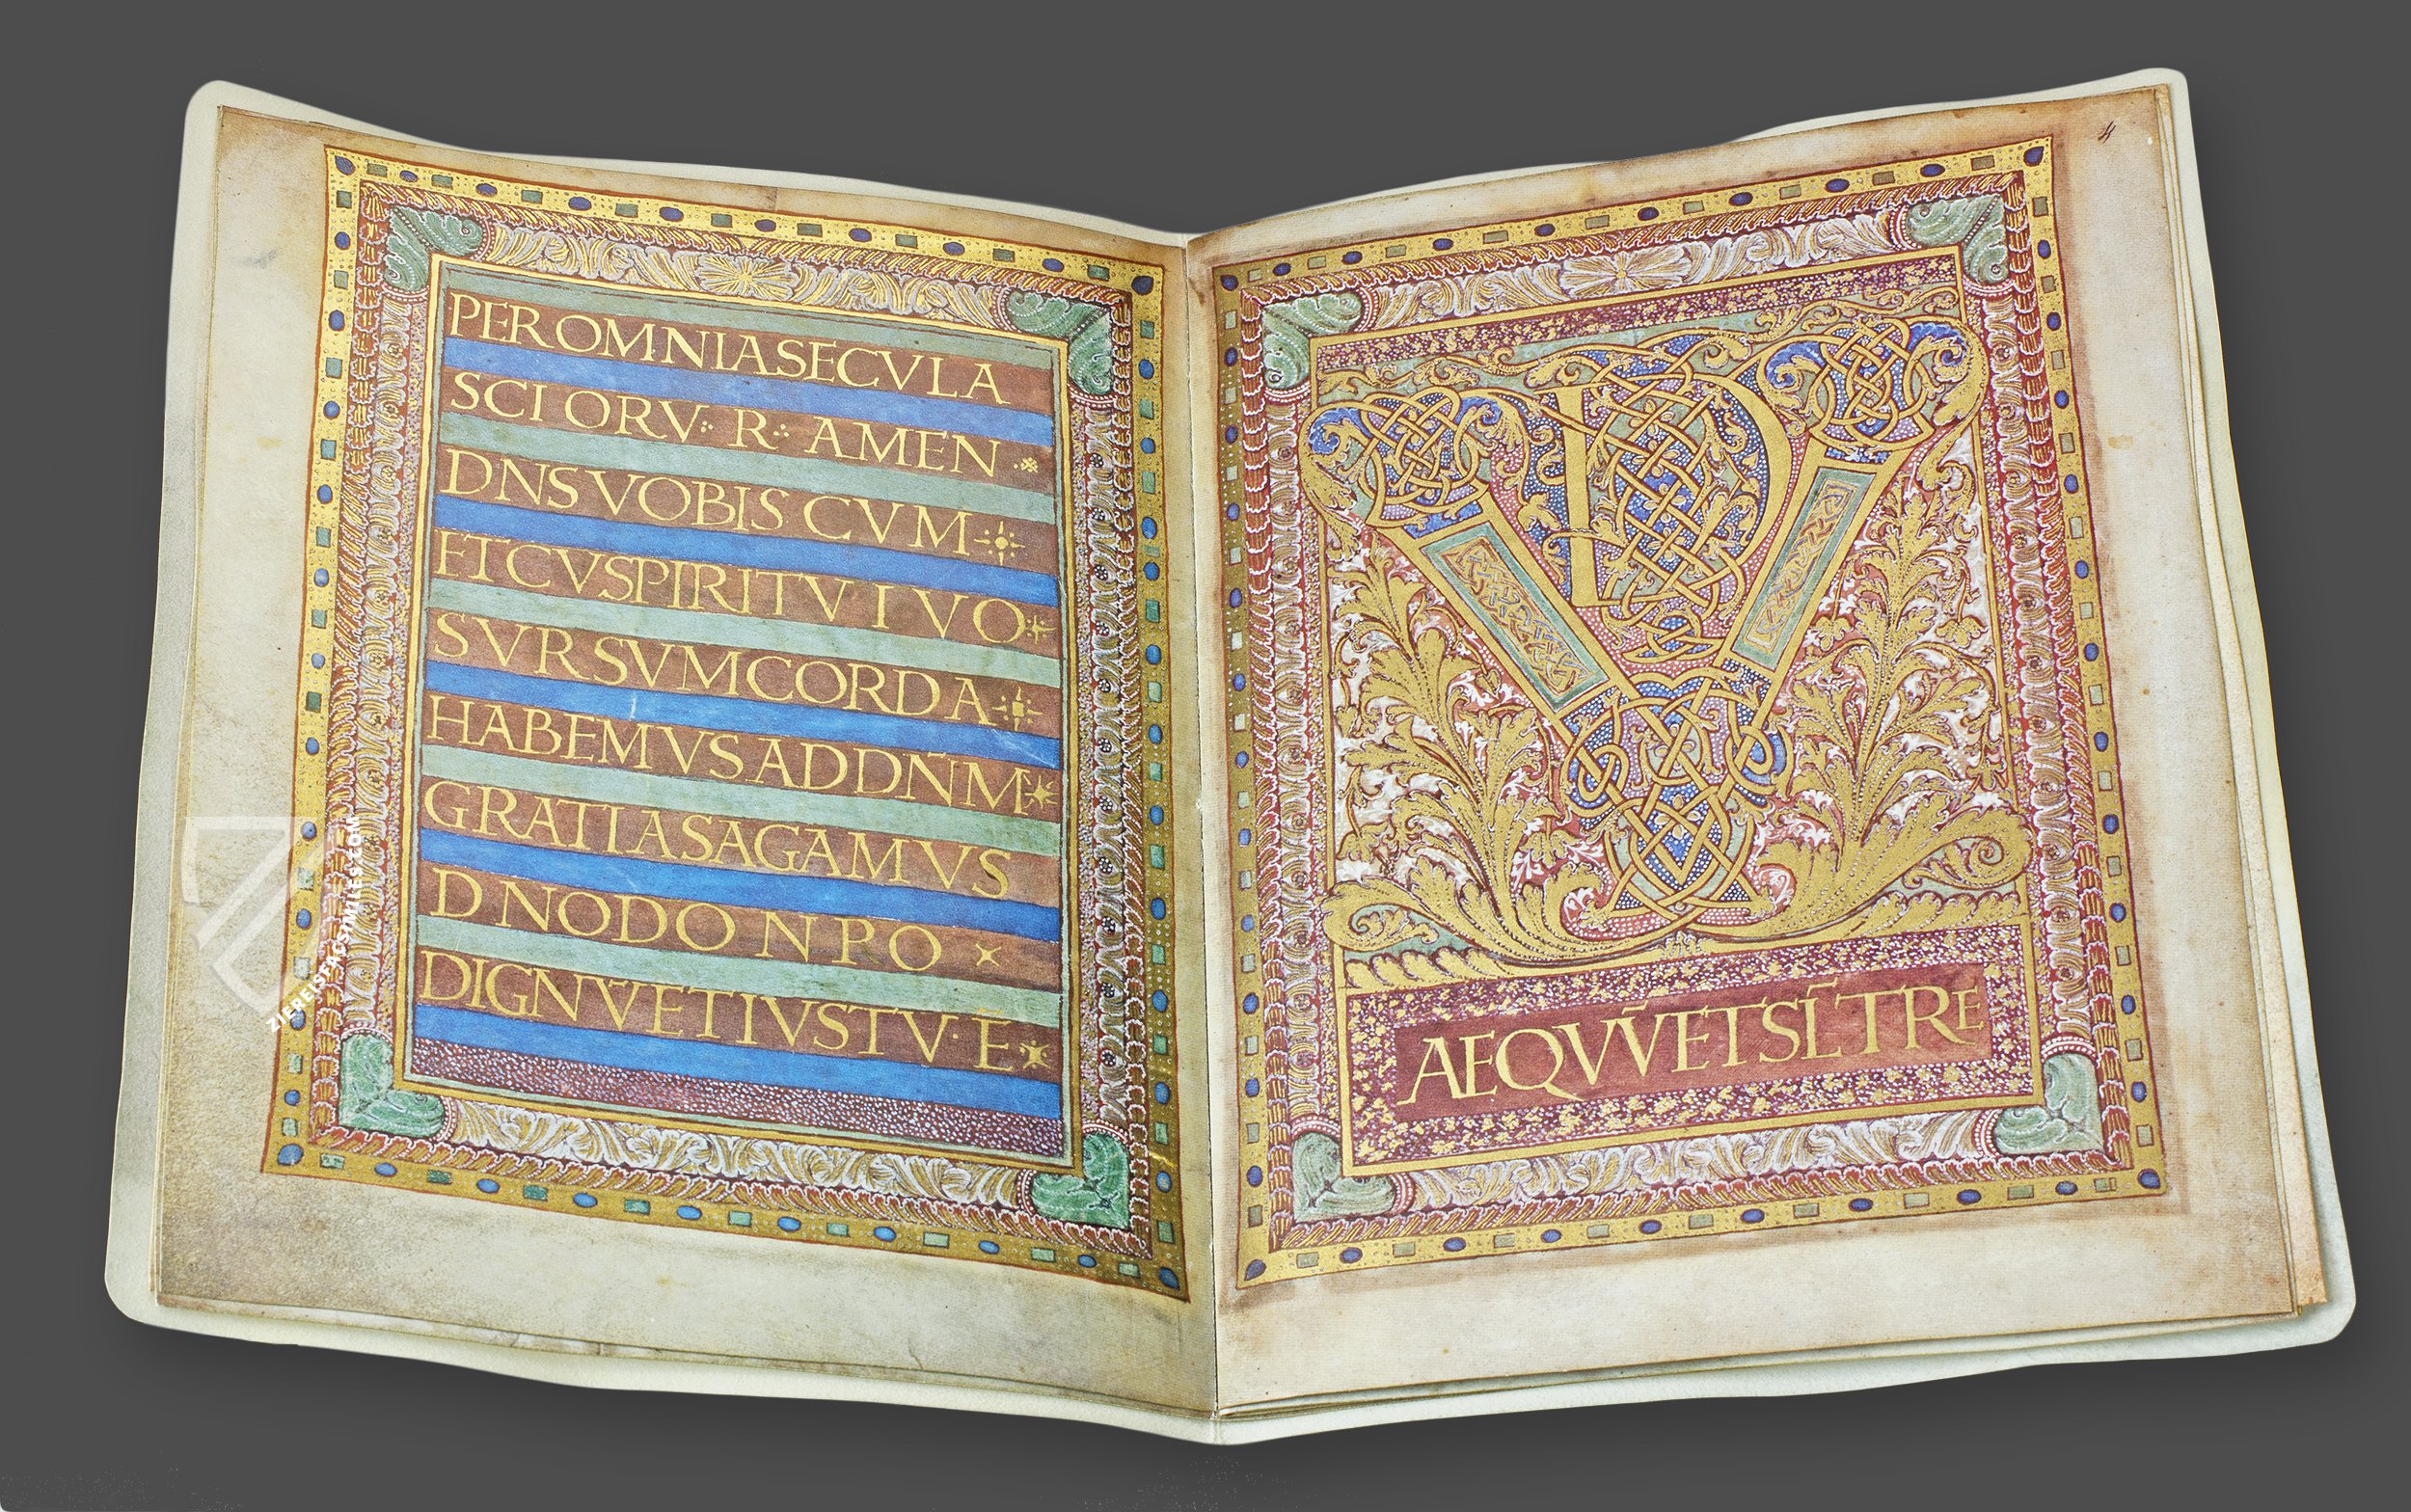 PER OMNIA SECVLA
SCLORV· R· AMEN
DNS VOBIS CVM
ET CV SPIRITV TVO
SVRSVM CORDA
HABEMVS AD DNM
GRATIAS AGAMVS
DNO DO NRO
DIGNV̄ ET IVSTV· Ē
VD
AEQVV̄ ET SL̄TRE
4
ZIEREISFACSIMILES.COM